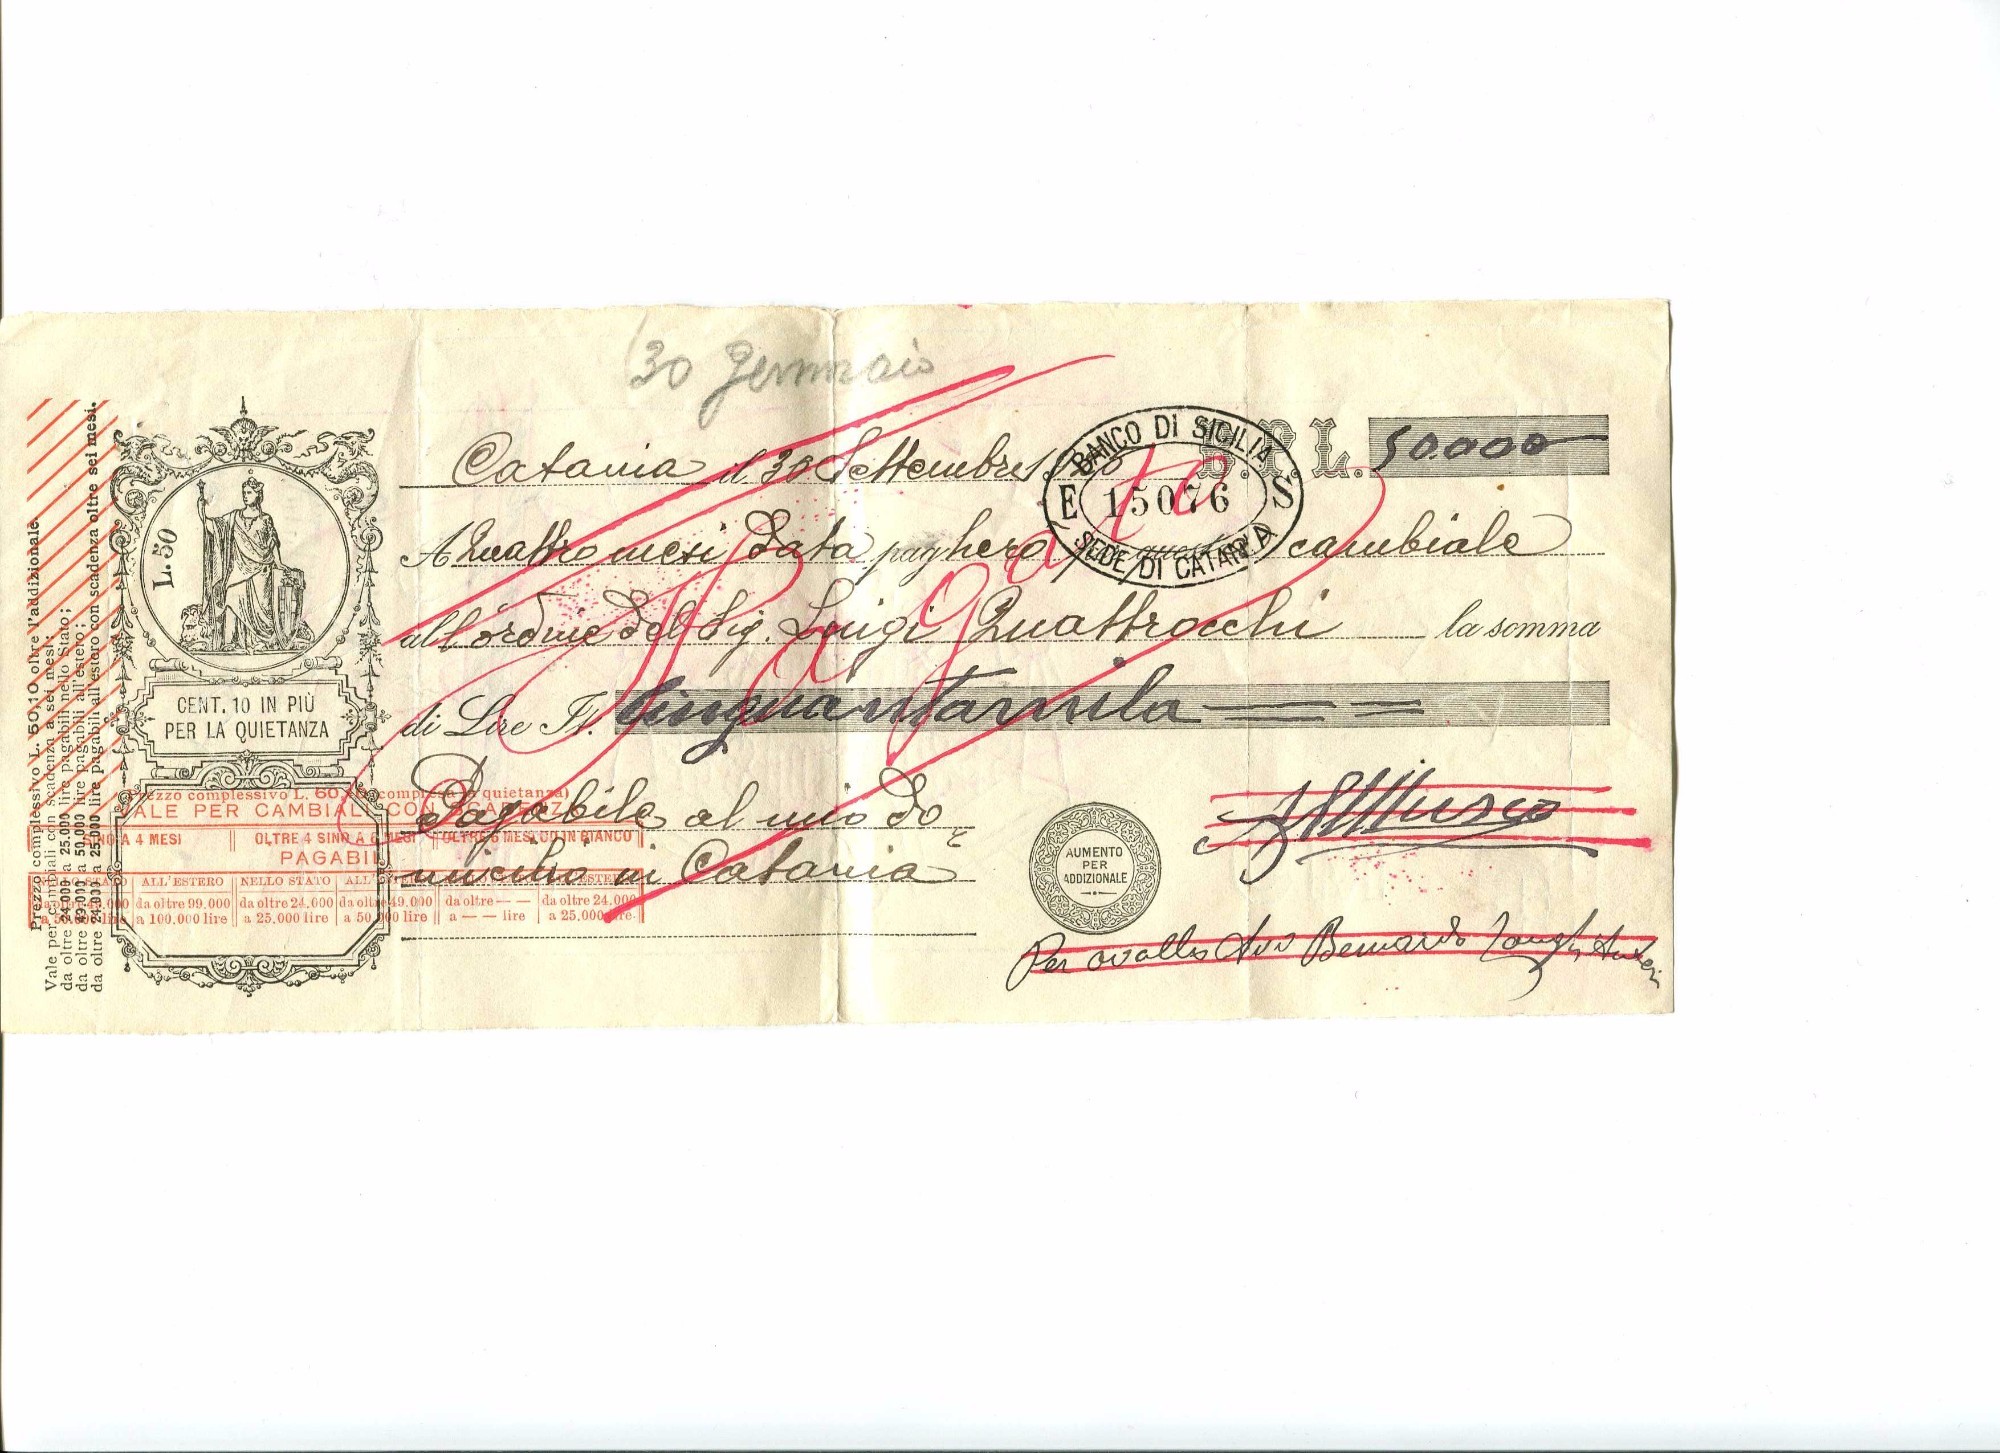 30 Gennaio
Catania il 30 Settembre B.P.L. 50.000
BANCO DI SICILIA
E 15076 S
SEDE DI CATANIA
A Quattro mesi data pagherò cambiale
all'ordine del Sig. Luigi Quattrocchi la somma
di Lire It. Cinquantamila
Pagabile al mio do
micilio in Catania
Pagato
AUMENTO
PER
ADDIZIONALE
Musco
Per avallo Avv Bernardo
L. 50
CENT. 10 IN PIÙ
PER LA QUIETANZA
Prezzo complessivo L. 50,10 oltre l'addizionale
Vale per cambiali con scadenza a sei mesi:
da oltre 24.000 a 25.000 lire pagabili nello Stato;
da oltre 49.000 a 50.000 lire pagabili all'estero;
da oltre 24.000 a 25.000 lire pagabili all'estero con scadenza oltre sei mesi.
Prezzo complessivo L. 60, compresa quietanza)
VALE PER CAMBIALI CON SCADENZA
SINO A 4 MESI OLTRE 4 SINO A 6 MESI OLTRE 6 MESI OD IN BIANCO
PAGABILI
NELLO STATO ALL'ESTERO NELLO STATO ALL'ESTERO ALL'ESTERO
da oltre 49.000 da oltre 99.000 da oltre 24.000 da oltre 49.000 da oltre — — da oltre 24.000
a 50.000 lire a 100.000 lire a 25.000 lire a 50.000 lire a — — lire a 25.000 lire